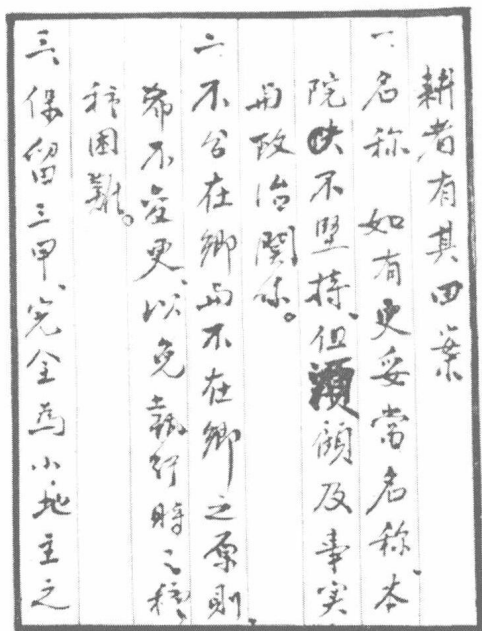 耕者有其田案
一、名称 如有更妥当名称、本
院决不坚持、但须顾及事实
与政治関係。
二、不分在鄉与不在鄉之原則、
希不变更、以免執行時種種
種困難。
三、保留三甲、完全為小地主之